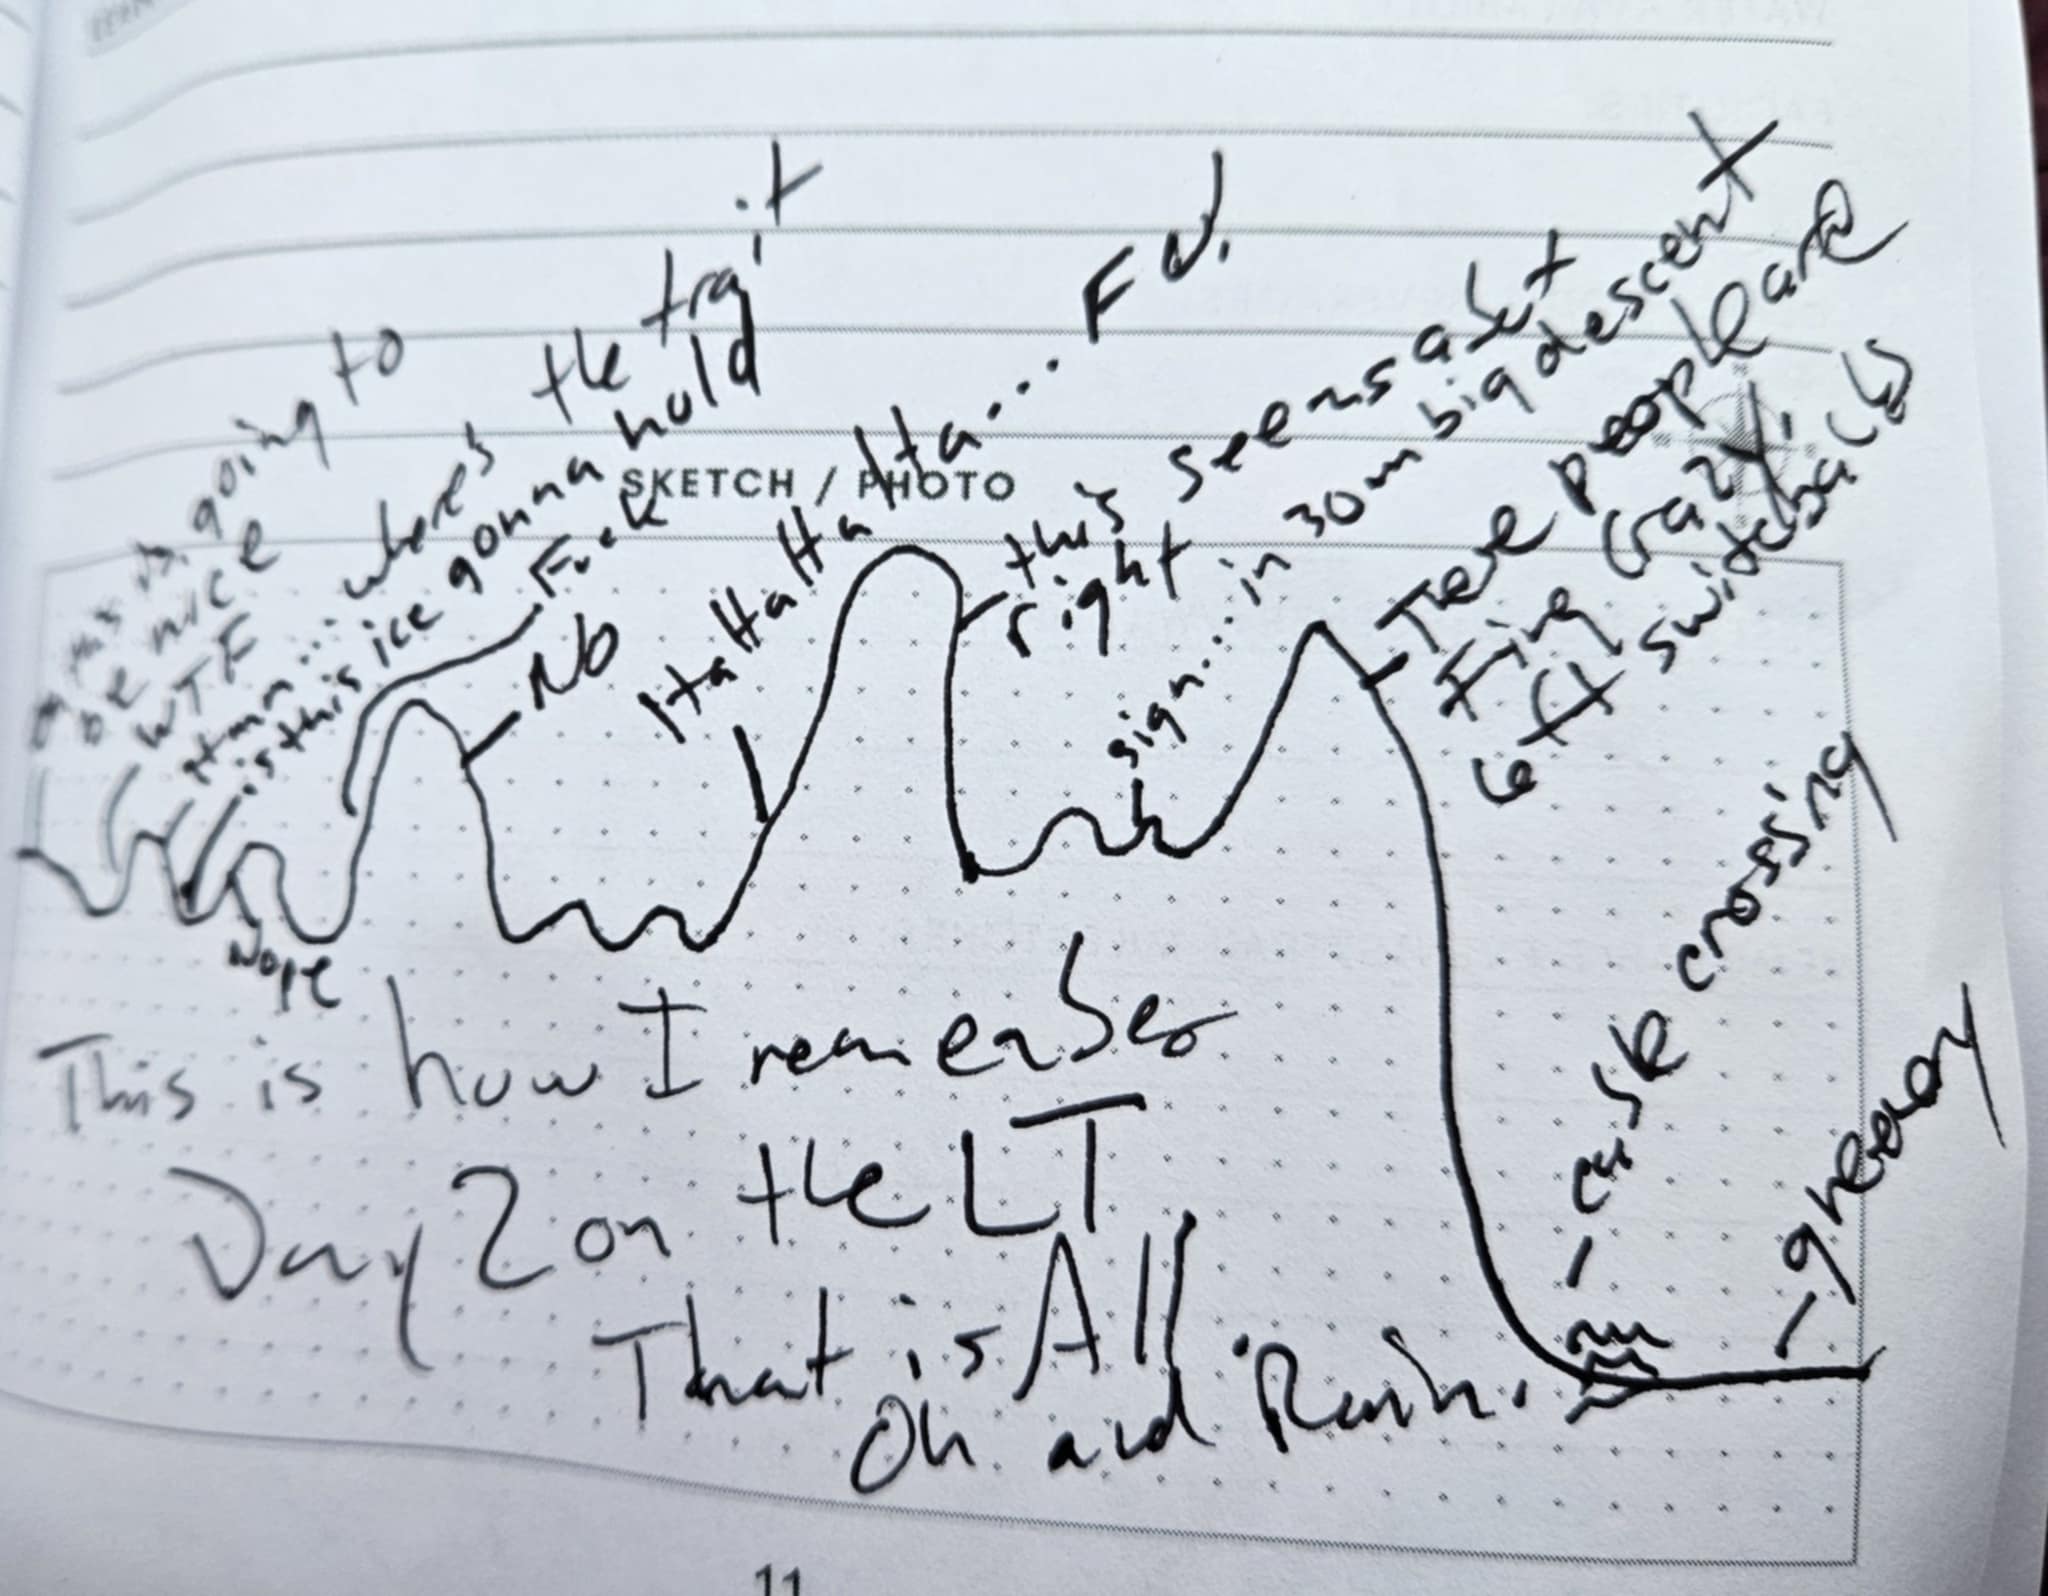 this is going to
be nice
WTF
Hmm... where's the trail
is this ice gonna hold
Nope
Fuck
No
SKETCH / PHOTO
HaHaHaHa... FU.
this seems about
right
sign... in 30m big descent
These people are
F'ing crazy.
Left switchbacks
crossing
greenery
This is how I remember
Day 2 on the LT
That is All.
Oh and Rain.
11